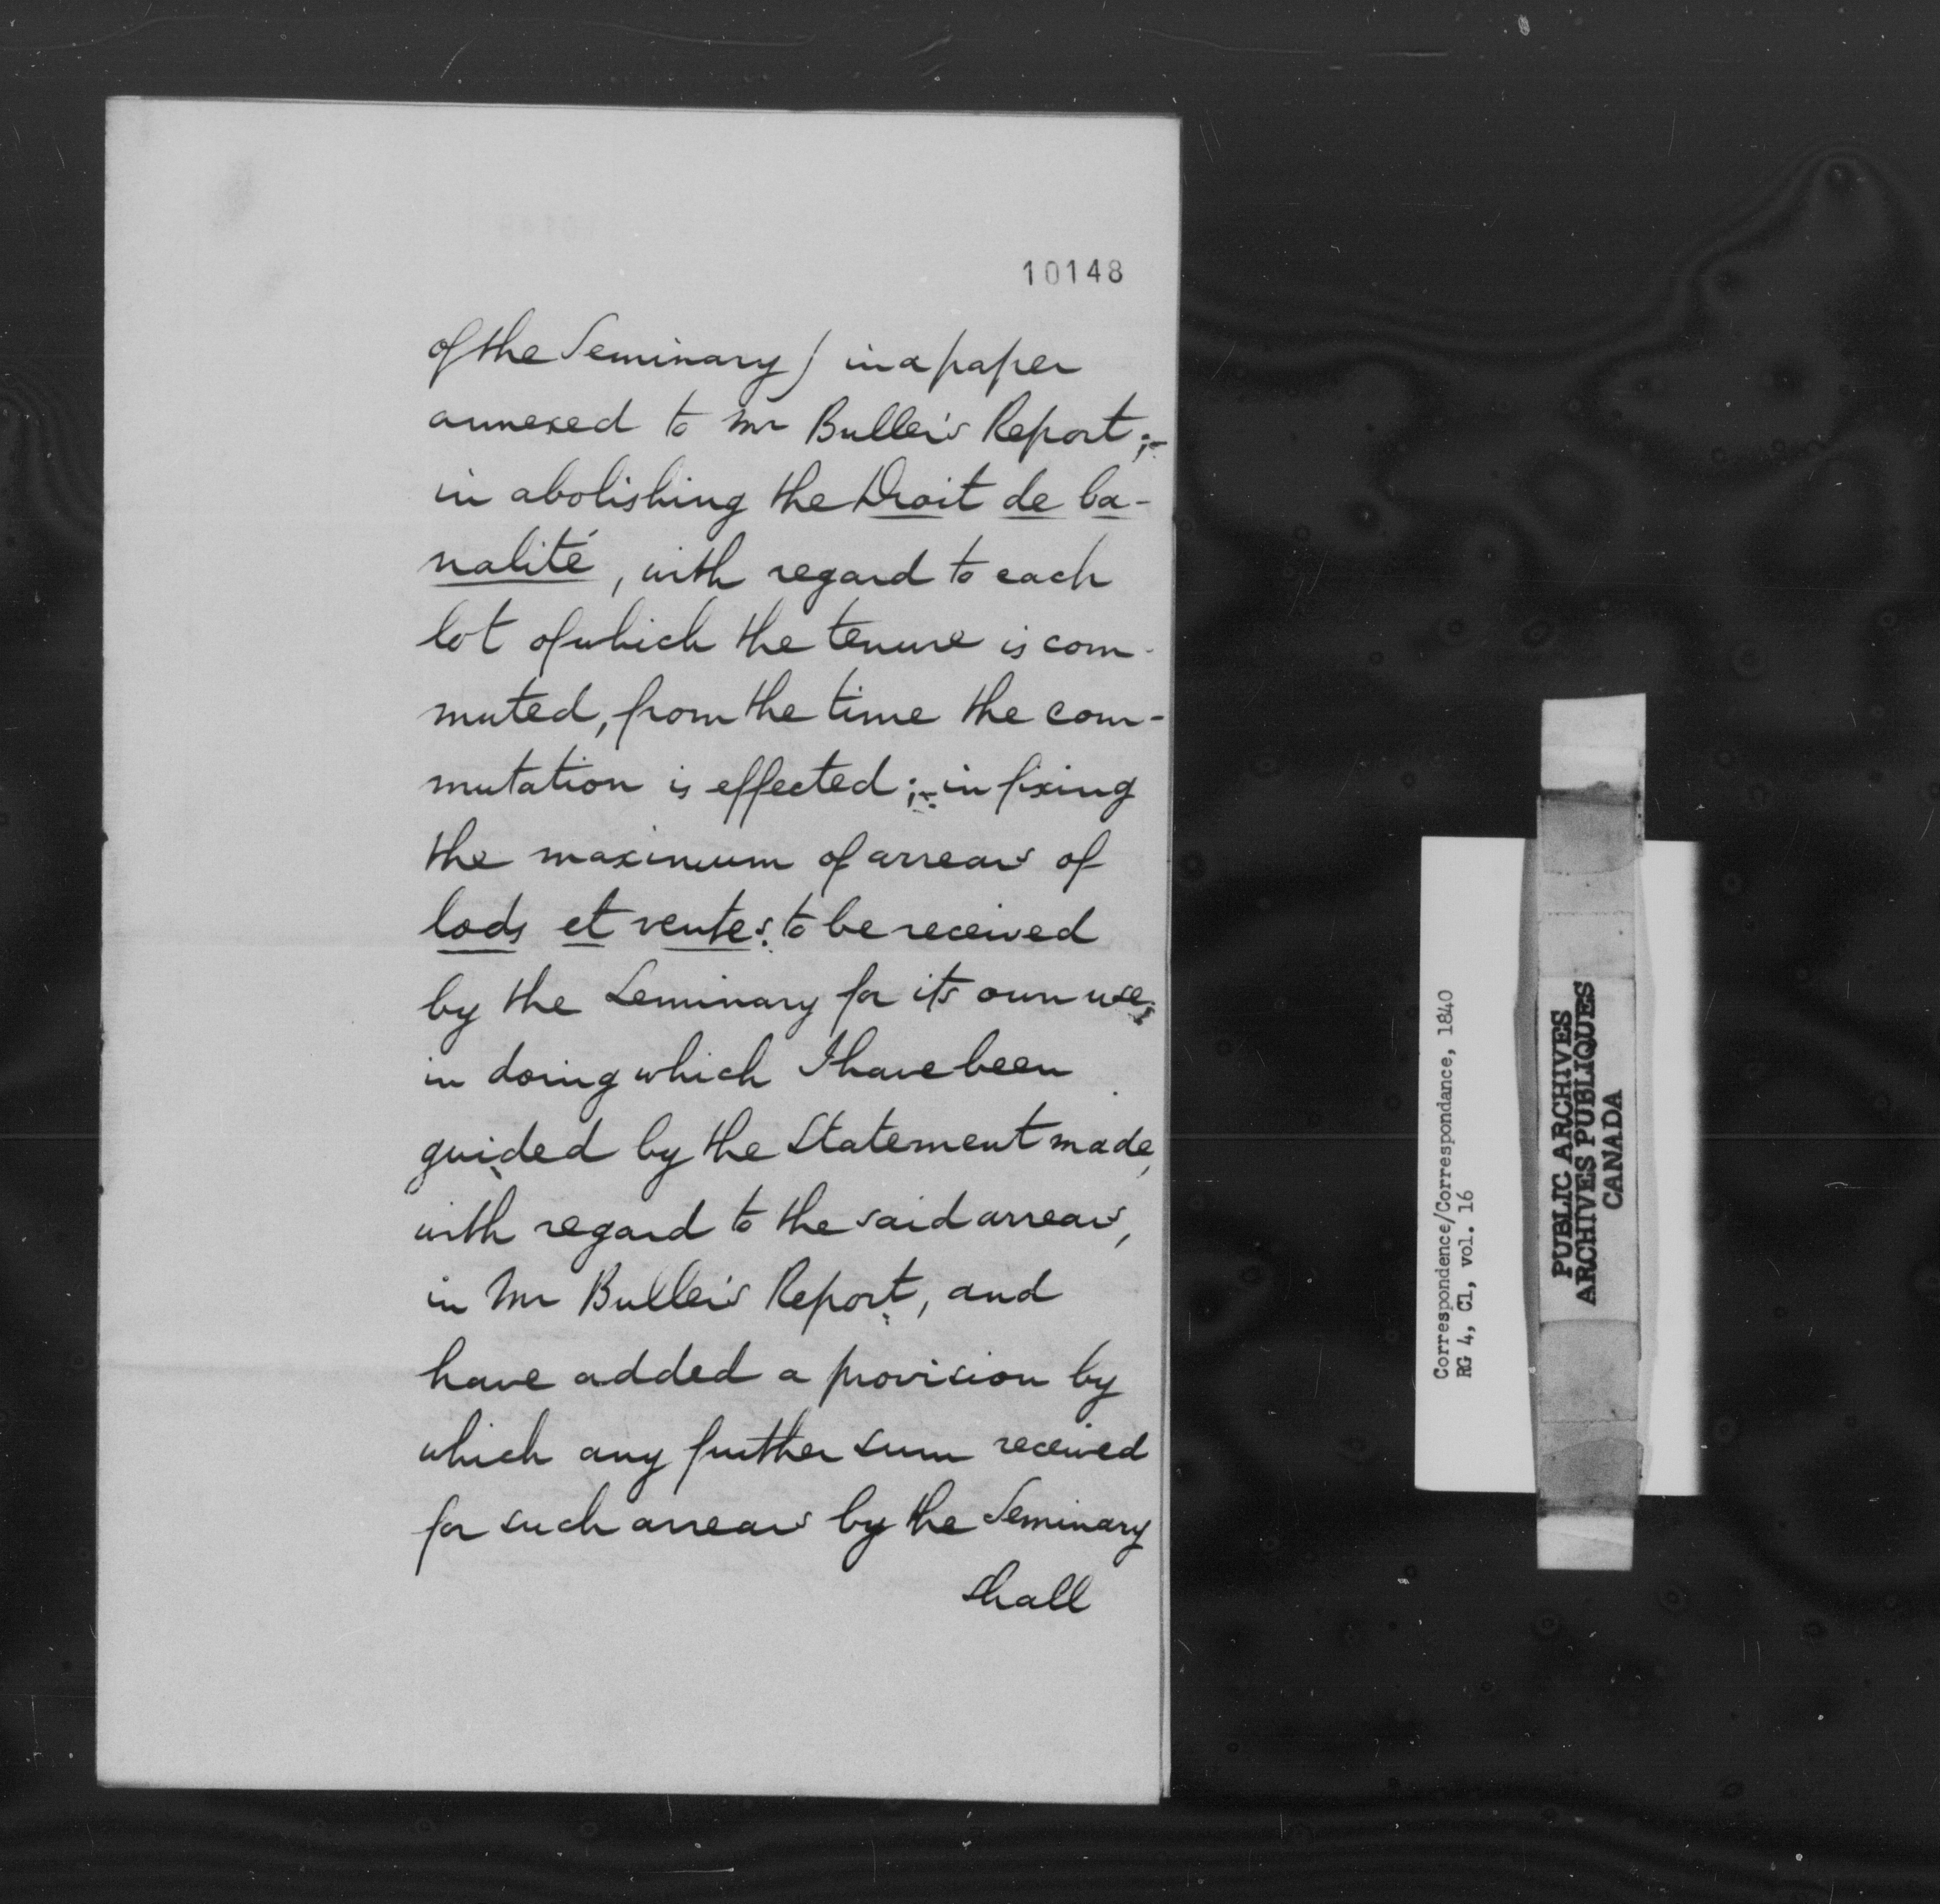 10148
of the Seminary) in a paper
annexed to Mr Buller's Report;-
in abolishing the Droit de ba-
nalité, with regard to each
lot of which the tenure is com-
muted, from the time the com-
mutation is effected;- in fixing
the maximum of arrears of
lods et ventes to be received
by the Seminary for its own use;
in doing which I have been
guided by the Statement made,
with regard to the said arrears,
in Mr Buller's Report, and
have added a provision by
which any further sum received
for such arrears by the Seminary
shall
Correspondence/Correspondance, 1840
RG 4, C1, vol. 16
PUBLIC ARCHIVES
ARCHIVES PUBLIQUES
CANADA